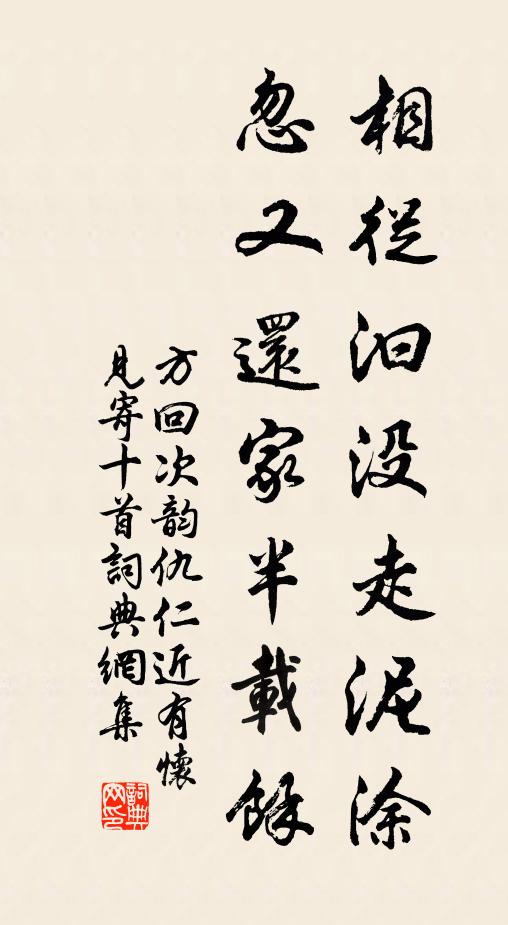 相從汩没走泥涂
忽又還家半載餘
方回次韵仇仁近有懷
見寄十首詞典網集
詞典網印